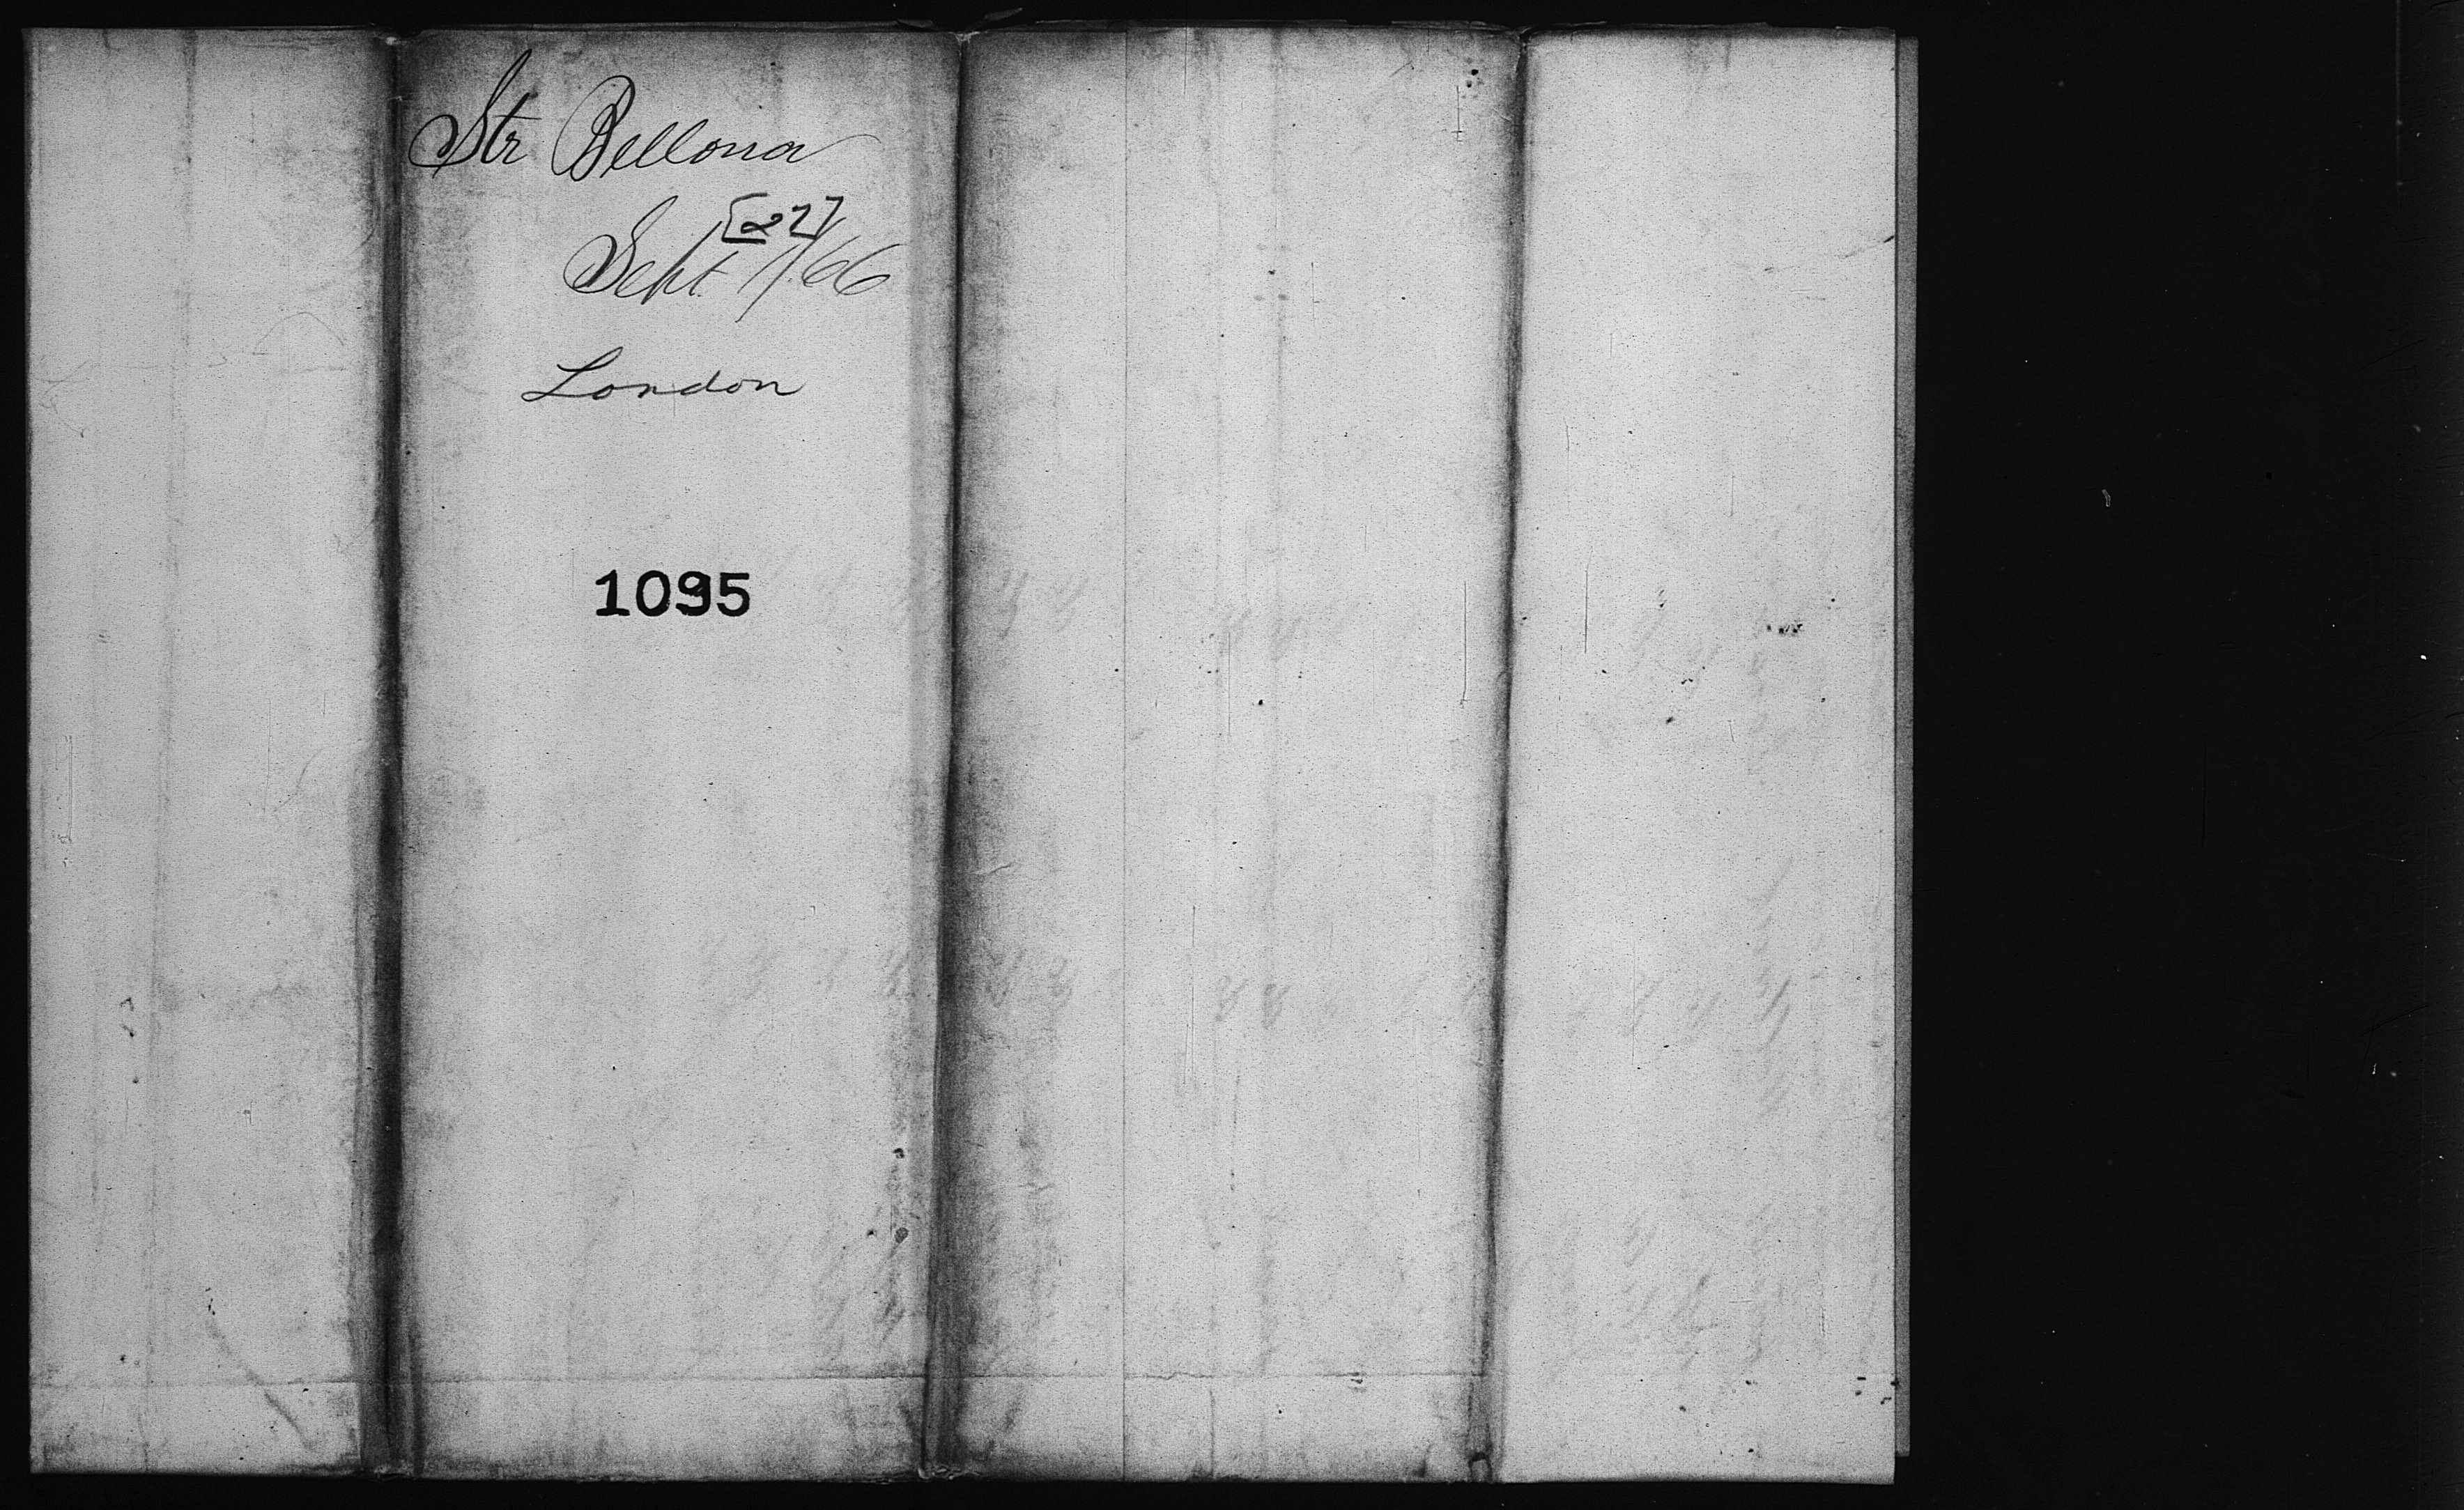 Str Bellona
[27]
Sept. 1/66
London
1095